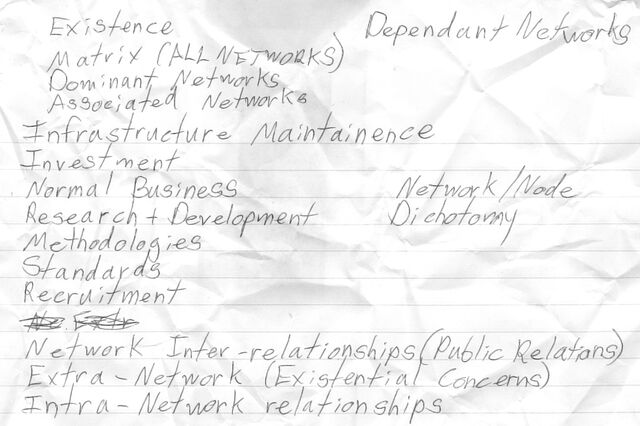 Existence Dependant Networks
Matrix (ALL NETWORKS)
Dominant Networks
Associated Networks
Infrastructure Maintainence
Investment
Normal Business Network/Node
Research + Development Dichotomy
Methodologies
Standards
Recruitment
Network Inter-relationships (Public Relations)
Extra-Network (Existential Concerns)
Intra-Network relationships